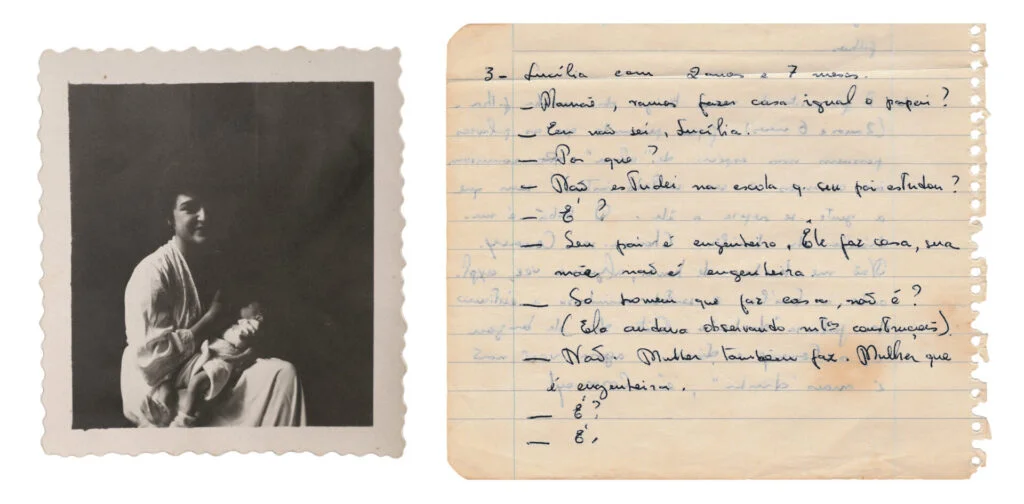 3 - Lucília com 2 anos e 7 meses.
— Mamãe, vamos fazer casa igual o papai?
— Eu não sei, Lucília.
— Por que?
— Não estudei na escola q. seu pai estudou?
— É?
— Seu pai é engenheiro. Êle faz casa, sua
mãe não é engenheira
— Só homem que faz casa, não é?
(Ela andava observando mtas construções).
— Não. Mulher também faz. Mulher que
é engenheira.
— É?
— É,